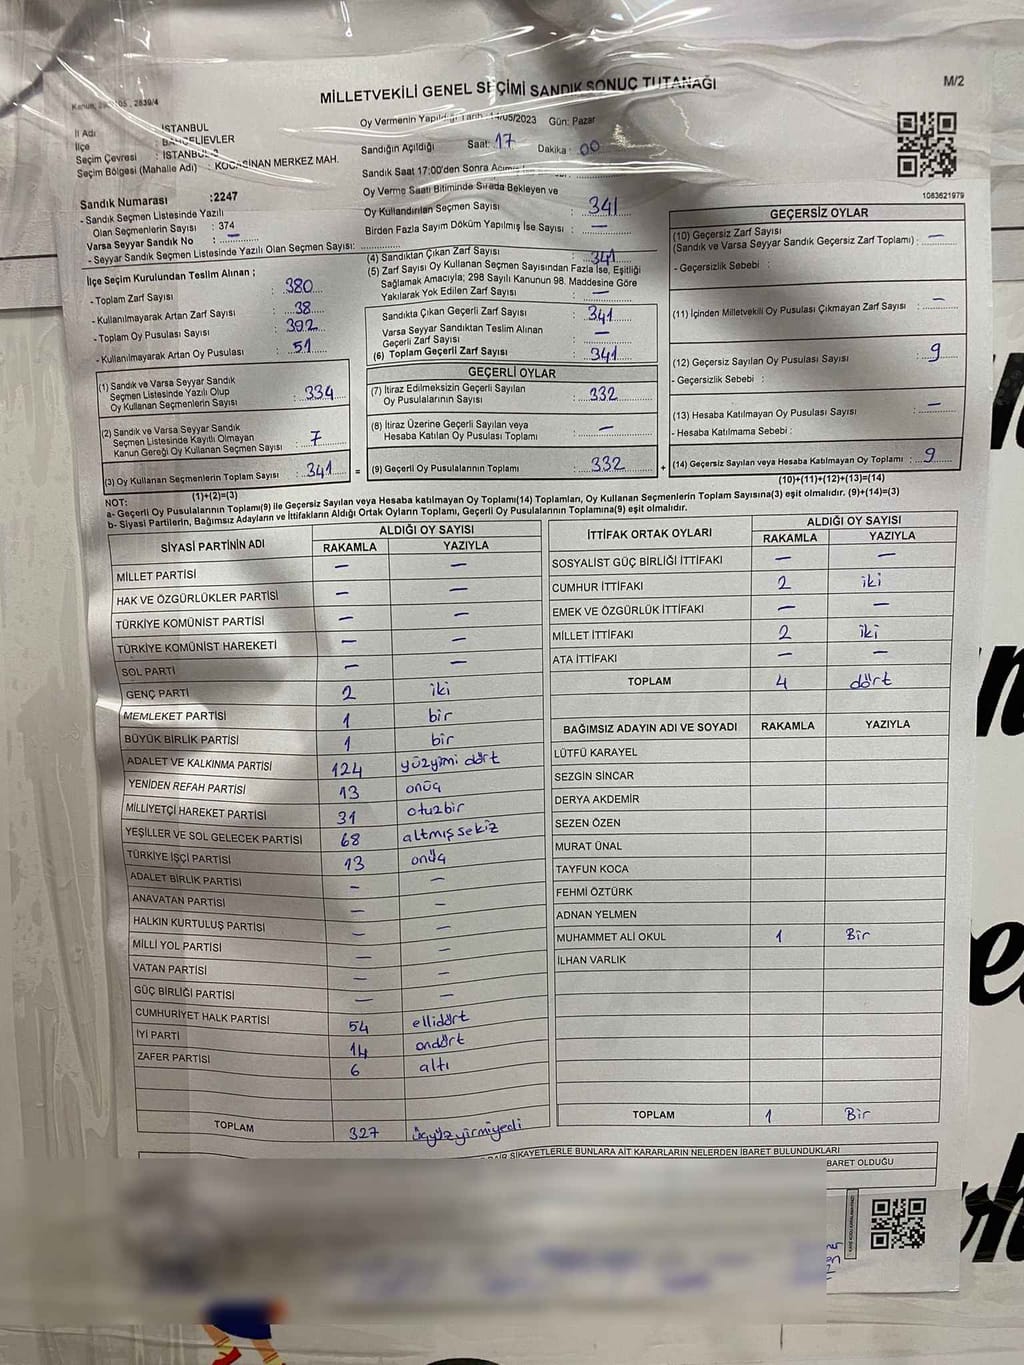 MİLLETVEKİLİ GENEL SEÇİMİ SANDIK SONUÇ TUTANAĞI
M/2
2839/4
İl Adı : İSTANBUL
İlçe : BAHÇELİEVLER
Seçim Çevresi : İSTANBUL
Seçim Bölgesi (Mahalle Adı) : KOCASİNAN MERKEZ MAH.
Sandık Numarası :2247
- Sandık Seçmen Listesinde Yazılı
Olan Seçmenlerin Sayısı : 374
Varsa Seyyar Sandık No : —
- Seyyar Sandık Seçmen Listesinde Yazılı Olan Seçmen Sayısı:
İlçe Seçim Kurulundan Teslim Alınan ;
- Toplam Zarf Sayısı : 380
- Kullanılmayarak Artan Zarf Sayısı : 38
- Toplam Oy Pusulası Sayısı : 392
- Kullanılmayarak Artan Oy Pusulası : 51
(1) Sandık ve Varsa Seyyar Sandık
Seçmen Listesinde Yazılı Olup
Oy Kullanan Seçmenlerin Sayısı : 334
(2) Sandık ve Varsa Seyyar Sandık
Seçmen Listesinde Kayıtlı Olmayan
Kanun Gereği Oy Kullanan Seçmen Sayısı : 7
(3) Oy Kullanan Seçmenlerin Toplam Sayısı : 341 =
(1)+(2)=(3)
Oy Vermenin Yapıldığı Tarih : 14/05/2023 Gün: Pazar
Sandığın Açıldığı Saat: 17 Dakika : 00
Sandık Saat 17:00'den Sonra
Oy Verme Saati Bitiminde Sırada Bekleyen ve
Oy Kullandırılan Seçmen Sayısı : 341
Birden Fazla Sayım Döküm Yapılmış İse Sayısı : —
(4) Sandıktan Çıkan Zarf Sayısı : 341
(5) Zarf Sayısı Oy Kullanan Seçmen Sayısından Fazla İse, Eşitliği
Sağlamak Amacıyla; 298 Sayılı Kanunun 98. Maddesine Göre
Yakılarak Yok Edilen Zarf Sayısı : —
Sandıkla Çıkan Geçerli Zarf Sayısı : 341
Varsa Seyyar Sandıktan Teslim Alınan
Geçerli Zarf Sayısı : —
(6) Toplam Geçerli Zarf Sayısı : 341
GEÇERLİ OYLAR
(7) İtiraz Edilmeksizin Geçerli Sayılan
Oy Pusulalarının Sayısı : 332
(8) İtiraz Üzerine Geçerli Sayılan veya
Hesaba Katılan Oy Pusulası Toplamı : —
(9) Geçerli Oy Pusulalarının Toplamı : 332 +
1063621979
GEÇERSİZ OYLAR
(10) Geçersiz Zarf Sayısı
(Sandık ve Varsa Seyyar Sandık Geçersiz Zarf Toplamı) : —
- Geçersizlik Sebebi :
(11) İçinden Milletvekili Oy Pusulası Çıkmayan Zarf Sayısı : —
(12) Geçersiz Sayılan Oy Pusulası Sayısı : 9
- Geçersizlik Sebebi :
(13) Hesaba Katılmayan Oy Pusulası Sayısı : —
- Hesaba Katılmama Sebebi :
(14) Geçersiz Sayılan veya Hesaba Katılmayan Oy Toplamı : 9
(10)+(11)+(12)+(13)=(14)
NOT:
a- Geçerli Oy Pusulalarının Toplamı(9) ile Geçersiz Sayılan veya Hesaba katılmayan Oy Toplamı(14) Toplamları, Oy Kullanan Seçmenlerin Toplam Sayısına(3) eşit olmalıdır. (9)+(14)=(3)
b- Siyasi Partilerin, Bağımsız Adayların ve İttifakların Aldığı Ortak Oyların Toplamı, Geçerli Oy Pusulalarının Toplamına(9) eşit olmalıdır.
SİYASİ PARTİNİN ADI ALDIĞI OY SAYISI
RAKAMLA YAZIYLA
MİLLET PARTİSİ — —
HAK VE ÖZGÜRLÜKLER PARTİSİ — —
TÜRKİYE KOMÜNİST PARTİSİ — —
TÜRKİYE KOMÜNİST HAREKETİ — —
SOL PARTİ — —
GENÇ PARTİ 2 iki
MEMLEKET PARTİSİ 1 bir
BÜYÜK BİRLİK PARTİSİ 1 bir
ADALET VE KALKINMA PARTİSİ 124 yüzyimi dört
YENİDEN REFAH PARTİSİ 13 onüç
MİLLİYETÇİ HAREKET PARTİSİ 31 otuzbir
YEŞİLLER VE SOL GELECEK PARTİSİ 68 altmışsekiz
TÜRKİYE İŞÇİ PARTİSİ 13 onüç
ADALET BİRLİK PARTİSİ — —
ANAVATAN PARTİSİ — —
HALKIN KURTULUŞ PARTİSİ — —
MİLLİ YOL PARTİSİ — —
VATAN PARTİSİ — —
GÜÇ BİRLİĞİ PARTİSİ — —
CUMHURİYET HALK PARTİSİ 54 ellidört
İYİ PARTİ 14 ondört
ZAFER PARTİSİ 6 altı
TOPLAM 327 üçyüzyirmiyedi
İTTİFAK ORTAK OYLARI ALDIĞI OY SAYISI
RAKAMLA YAZIYLA
SOSYALİST GÜÇ BİRLİĞİ İTTİFAKI — —
CUMHUR İTTİFAKI 2 iki
EMEK VE ÖZGÜRLÜK İTTİFAKI — —
MİLLET İTTİFAKI 2 iki
ATA İTTİFAKI — —
TOPLAM 4 dört
BAĞIMSIZ ADAYIN ADI VE SOYADI RAKAMLA YAZIYLA
LÜTFÜ KARAYEL
SEZGİN SİNCAR
DERYA AKDEMİR
SEZEN ÖZEN
MURAT ÜNAL
TAYFUN KOCA
FEHMİ ÖZTÜRK
ADNAN YELMEN
MUHAMMET ALİ OKUL 1 Bir
İLHAN VARLIK
TOPLAM 1 Bir
ŞİKAYETLERLE BUNLARA AİT KARARLARIN NELERDEN İBARET BULUNDUKLARI
BARET OLDUĞU